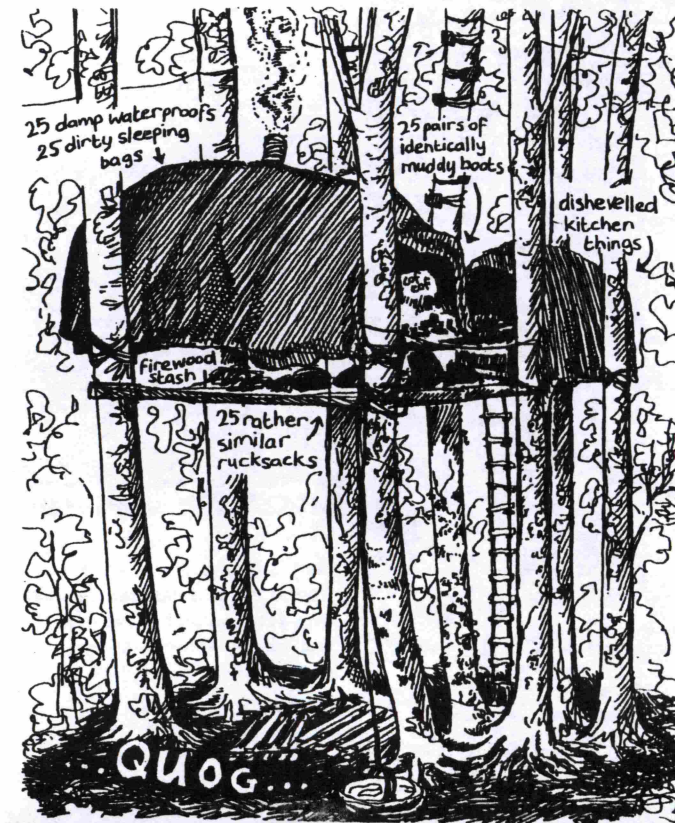 25 damp waterproofs
25 dirty sleeping
bags
25 pairs of
identically
muddy boots
dishevelled
kitchen
things
firewood
stash
25 rather
similar
rucksacks
...QUOG...